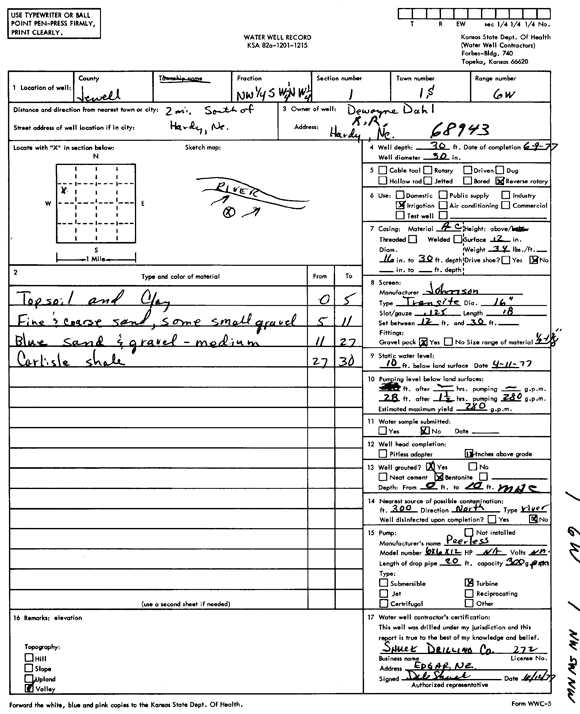 USE TYPEWRITER OR BALL
POINT PEN-PRESS FIRMLY,
PRINT CLEARLY.
WATER WELL RECORD
KSA 82a-1201-1215
T R EW sec 1/4 1/4 1/4 No.
Kansas State Dept. Of Health
(Water Well Contractors)
Forbes-Bldg. 740
Topeka, Kansas 66620
1 Location of well: County Township name Fraction Section number Town number Range number
Jewell NW 1/4 S W 1/2 N W 1/4 1 1S 6W
Distance and direction from nearest town or city: 2 mi. South of
Street address of well location if in city: Hardy, Ne.
3 Owner of well: Dewayne Dahl
R.R.
Address: Hardy, Ne. 68943
Locate with "X" in section below: Sketch map:
N
W E
S
1 Mile
X
RIVER
X
4 Well depth: 30 ft. Date of completion 6-9-77
Well diameter 30 in.
5 Cable tool Rotary Driven Dug
Hollow rod Jetted Bored Reverse rotary
6 Use: Domestic Public supply Industry
Irrigation Air conditioning Commercial
Test well
7 Casing: Material AC Height: above/below
Threaded Welded Surface 12 in.
Diam. Weight 34 lbs./ft.
16 in. to 30 ft. depth Drive shoe? Yes No
in. to ft. depth
2 Type and color of material From To
Topsoil and Clay 0 5
Fine & coarse sand, some small gravel 5 11
Blue sand & gravel - medium 11 27
Carlisle shale 27 30
(use a second sheet if needed)
8 Screen:
Manufacturer Johnson
Type Transite Dia. 16"
Slot/gauze .125 Length 18
Set between 12 ft. and 30 ft.
Fittings:
Gravel pack Yes No Size range of material
9 Static water level:
10 ft. below land surface Date 4-11-77
10 Pumping level below land surfaces:
ft. after hrs. pumping g.p.m.
28 ft. after 1 1/2 hrs. pumping 280 g.p.m.
Estimated maximum yield 280 g.p.m.
11 Water sample submitted:
Yes No Date
12 Well head completion:
Pitless adapter Inches above grade
13 Well grouted? Yes No
Neat cement Bentonite
Depth: From 0 ft. to 10 ft.
14 Nearest source of possible contamination:
ft. 300 Direction North Type River
Well disinfected upon completion? Yes No
15 Pump: Not installed
Manufacturer's name Peerless
Model number 6X6X12 HP NA Volts NA
Length of drop pipe 20 ft. capacity 300 g.p.m
Type:
Submersible Turbine
Jet Reciprocating
Certrifugal Other
16 Remarks: elevation
Topography:
Hill
Slope
Upland
Valley
17 Water well contractor's certification:
This well was drilled under my jurisdiction and this
report is true to the best of my knowledge and belief.
SHUCK DRILLING Co. 272
Business name License No.
Address EDGAR, NE.
Signed Date
Authorized representative
Forward the white, blue and pink copies to the Kansas State Dept. Of Health.
Form WWC-5
1 6W 1 NW SW NW